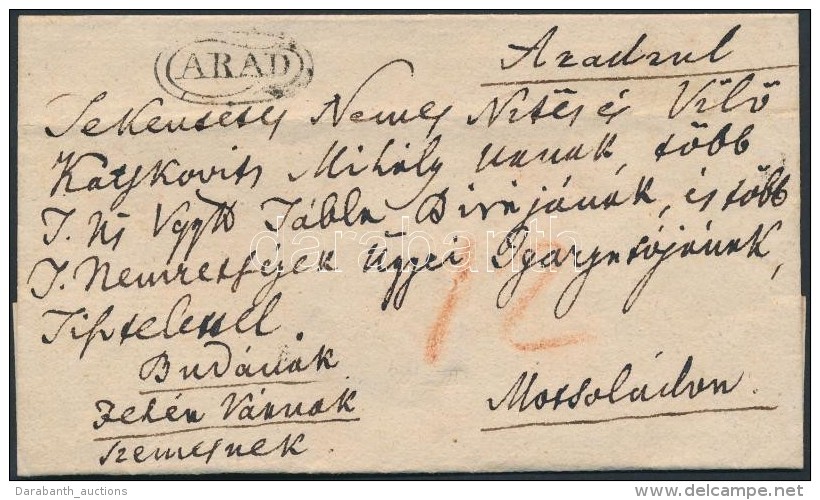 ARAD
Aradrul
Tekentetes Nemes Nztes és Vzlö
Katskovits Mihály Urnak, több
T. Ns Vgyék Tábla Birájának, és több
T. Nemzetségek Ügyei Igazgatójának,
Tisztelettel.
12
Budának
Fehér Várnak
Szemesnek
Motsoládon.
darabanth
Darabanth_auctions
www.delcampe.net